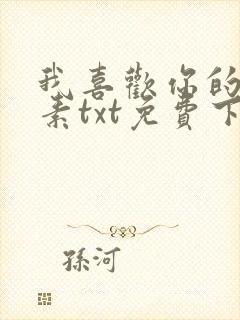 我喜歡你的
素txt免費下
孫河